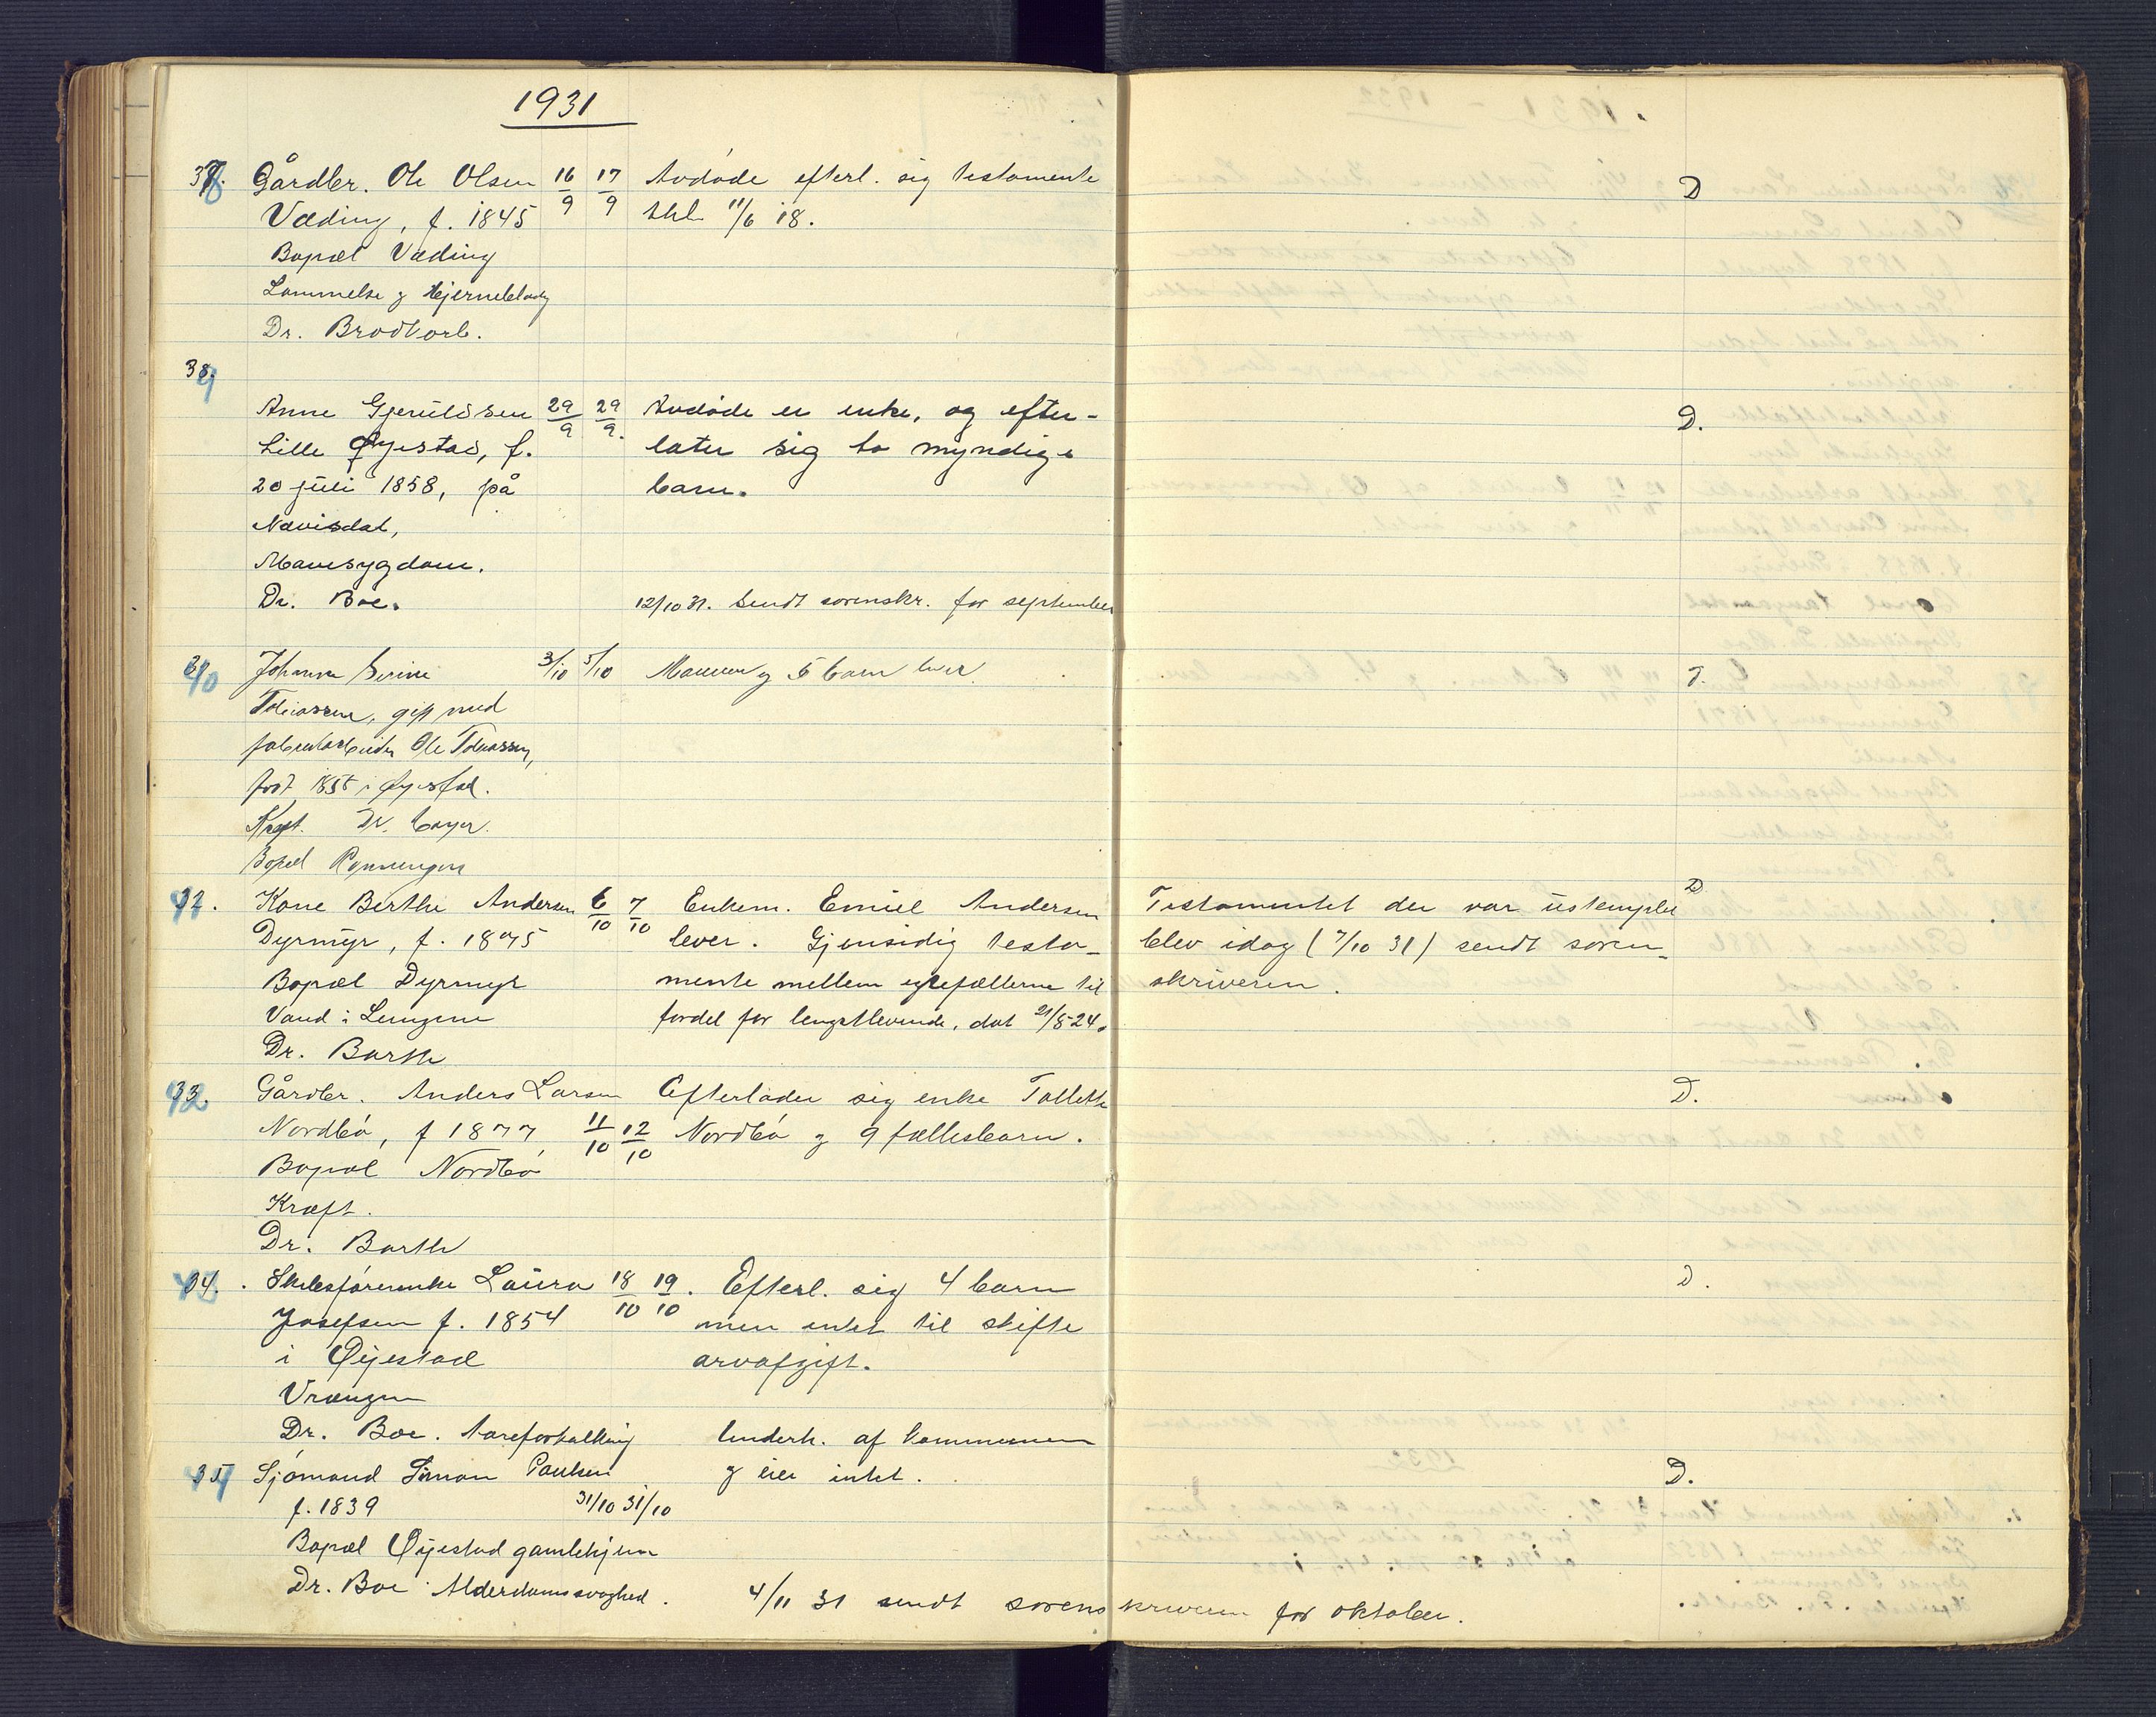 1931
38. Gårdbr. Ole Olsen 16/9 17/9 Avdøde efterl. sig testamente D
Væding, f. 1845 11/6 18.
Bopæl Væding
Lammelse og Hjerneblødg
Dr. Brodtkorb.
39
Anne Gjeruldsen 29/9 29/9. Avdøde er enke, og efter- D.
Lille Øyestad, f. later sig to myndige
20 juli 1858, på barn.
Nævisdal,
Mavesygdom.
Dr. Boe. 12/10 31. Sendt sorenskr. for september
40 Johanne Serine 3/10 5/10 Mannen og 5 barn lever. T.
Tobiassen, gift med
fabrikarbeider Ole Tobiassen,
født 1855 i Øyestad.
Kræft. Dr.
Bopæl Rønningen
41. Kone Berthe Andersen 6/10 7/10 Enkem. Emiel Andersen Testamentet der var ustemplet D
Dyrmyr, f. 1875 lever. Gjensidig testa- blev idag (7/10 31) sendt soren-
Bopæl Dyrmyr mente mellem egtefællerne til skriveren.
Vand i Lungene fordel for lengstlevende, dat 21/5-24.
Dr. Barth
42. Gårdbr. Anders Larsen Efterlader sig enke Tallette D.
Nordbø, f 1877, 11/10 12/10 Nordbø og 9 fællesbarn.
Bopæl Nordbø
Kræft.
Dr. Barth
43. Skibsførerenke Laura 18/10 19/10. Efterl. sig 4 barn D.
Josefsen f. 1854 men intet til skifte
i Øyestad arvafgift.
Vrængen
Dr. Boe. Aareforkalkning Underh. af kommunen
44 Sjømand Simon Paulsen og eier intet. D.
f. 1839 31/10 31/10
Bopæl Øyestad gamlehjem
Dr. Boe Alderdomssvaghed. 4/11 31 sendt sorenskriveren for oktober.